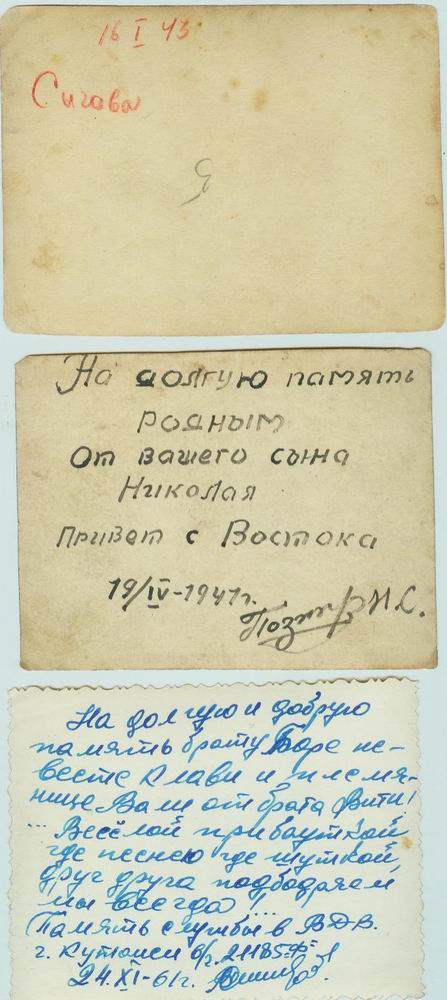 16 I 43
Сигава
На долгую память
родным
От вашего сына
Николая
Привет с Востока
19/IV-1941г.
Н.С.
На долгую и добрую
память брату Боре не-
весте Клави и племя-
нице Вали от брата Вити!
... Весёлой прибауткой,
где песнею где шуткой,
друг друга подбодряем
мы всегда!...
Память службы в ВДВ.
г. Кутаиси в/г. 21185
24.XI-61г.